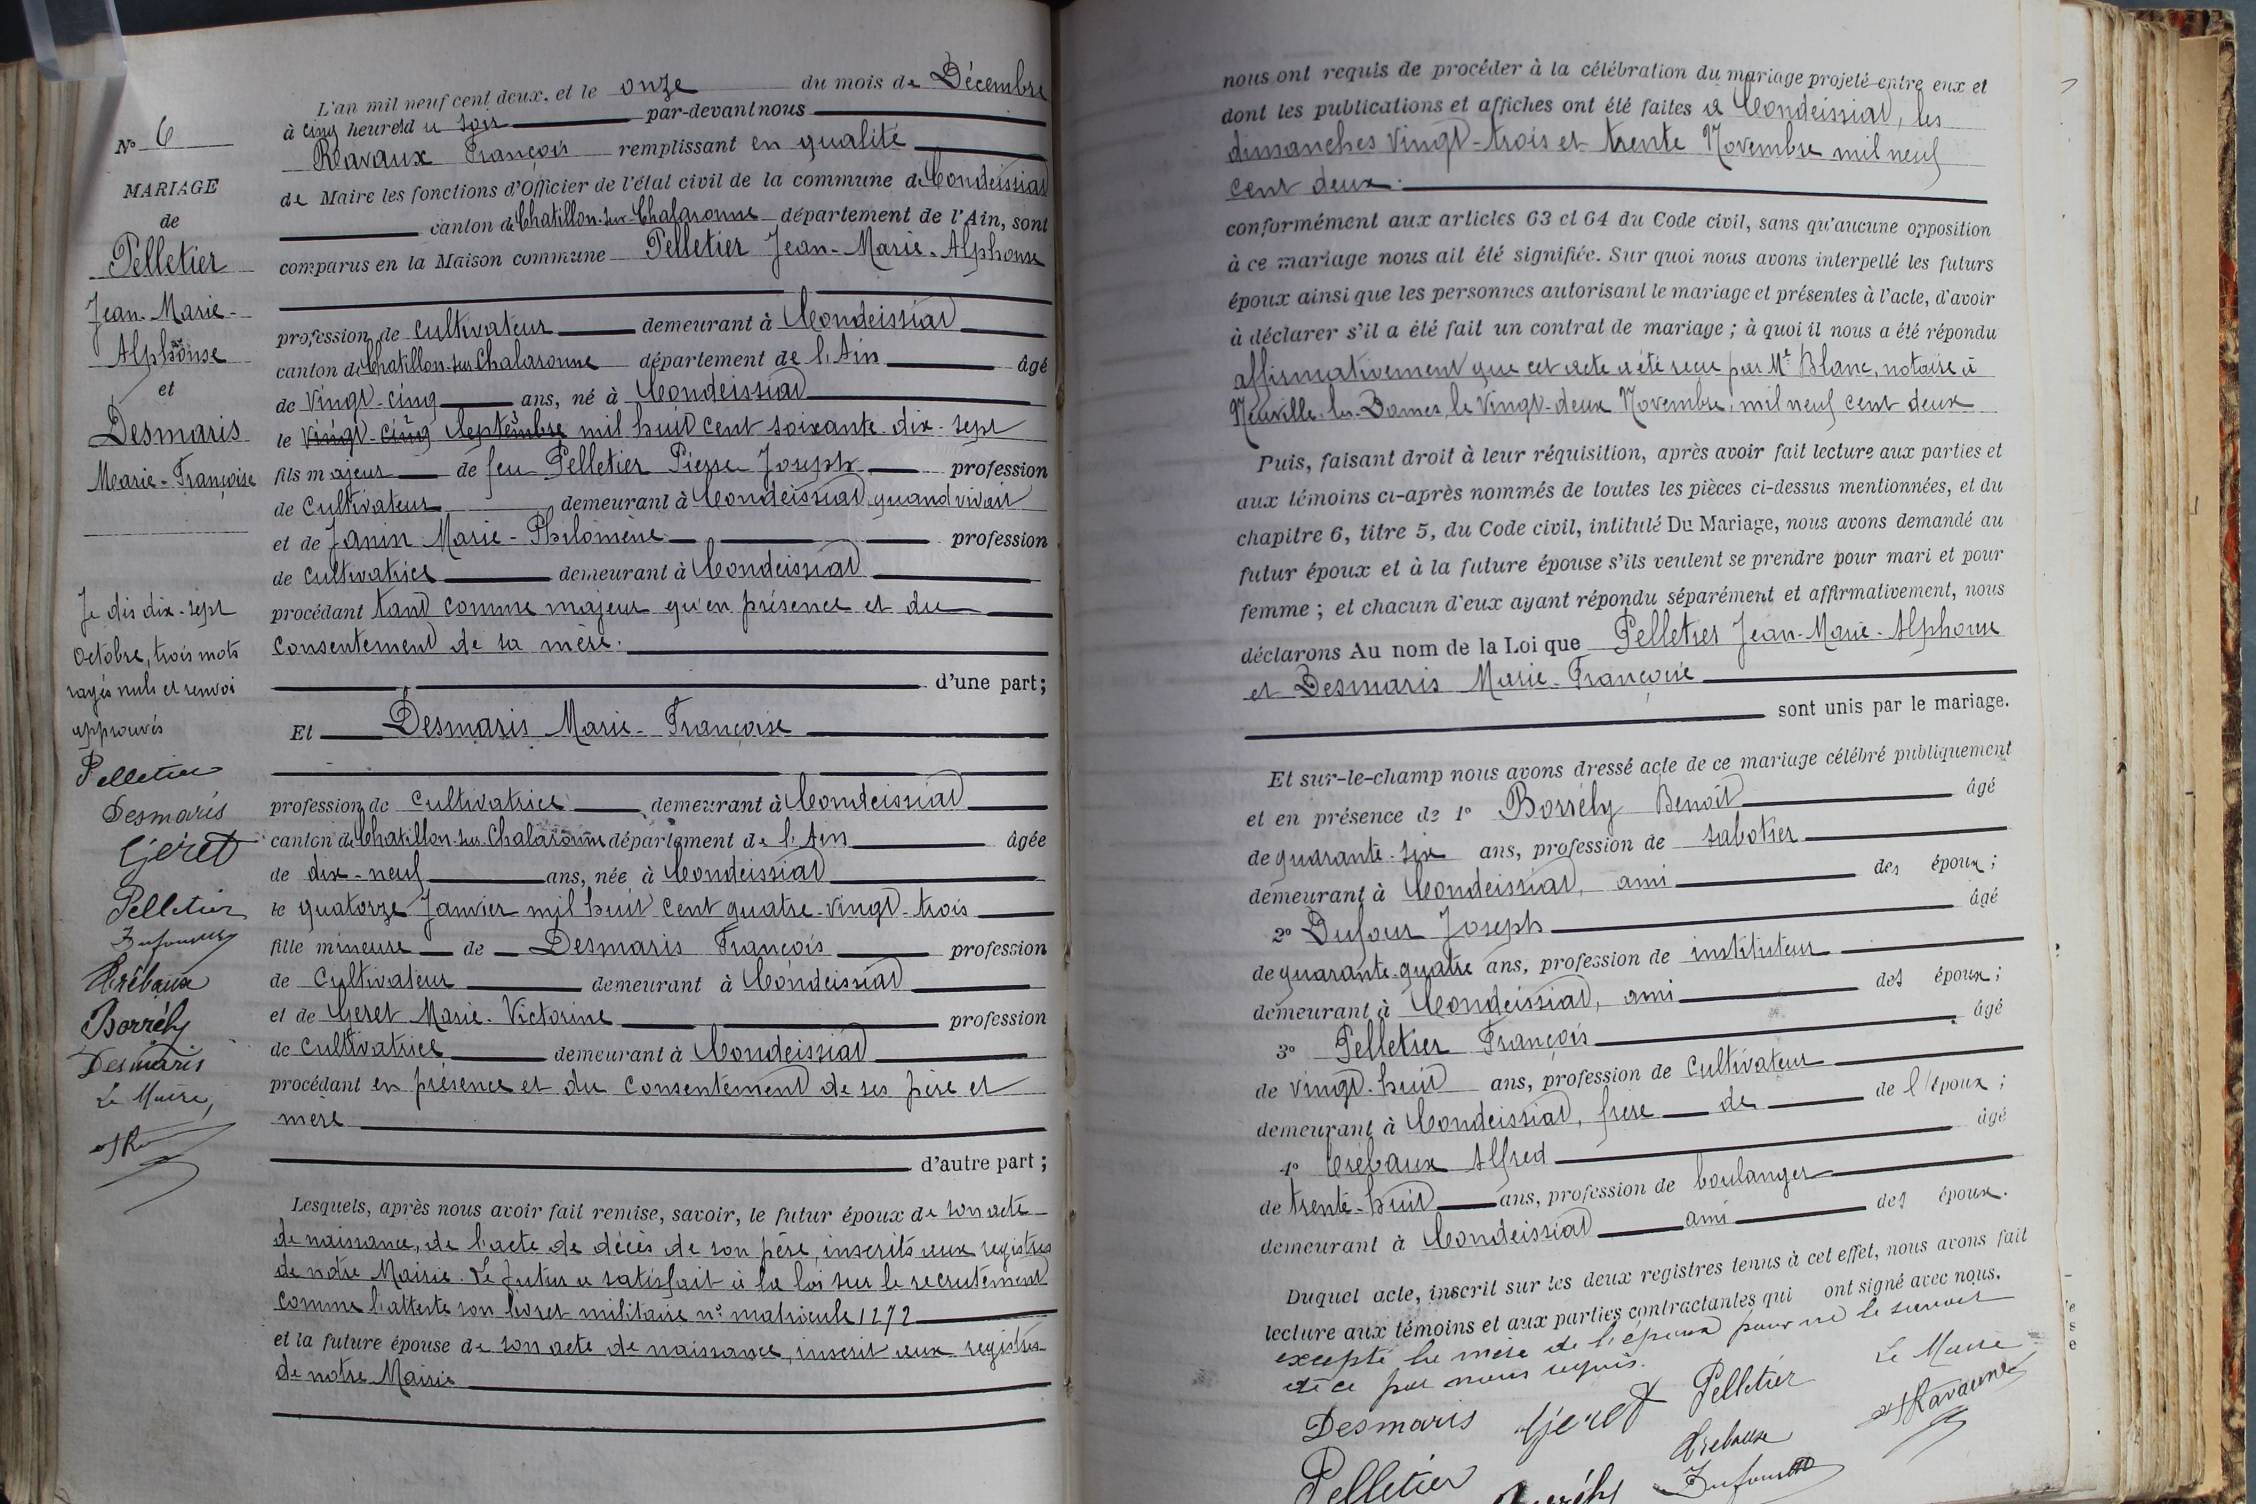 N° 6
MARIAGE
de
Pelletier
Jean-Marie-
Alphonse
et
Desmaris
Marie-Françoise
Je dis dix-sept
octobre, trois mots
rayés nuls et renvoi
approuvés
Pelletier
Desmaris
Géret
Pelletier
Dufour
Crébaux
Borrély
Desmaris
Le Maire,
L'an mil neuf cent deux, et le onze du mois de Décembre
à cinq heures du soir par-devant nous
Ravaux François remplissant en qualité
de Maire les fonctions d'Officier de l'état civil de la commune de Condeissiat
canton de Chatillon-sur-Chalaronne département de l'Ain, sont
comparus en la Maison commune Pelletier Jean-Marie-Alphonse
profession de cultivateur demeurant à Condeissiat
canton de Chatillon-sur-Chalaronne département de l'Ain âgé
de vingt-cinq ans, né à Condeissiat
le vingt-cinq Septembre mil huit cent soixante-dix-sept
fils majeur de feu Pelletier Pierre Joseph profession
de Cultivateur demeurant à Condeissiat quand vivait
et de Janin Marie-Philomène profession
de cultivatrice demeurant à Condeissiat
procédant tant comme majeur qu'en présence et du
consentement de sa mère.
d'une part;
Et Desmaris Marie-Françoise
profession de cultivatrice demeurant à Condeissiat
canton de Chatillon-sur-Chalaronne département de l'Ain âgée
de dix-neuf ans, née à Condeissiat
le quatorze Janvier mil huit cent quatre-vingt-trois
fille mineure de Desmaris François profession
de Cultivateur demeurant à Condeissiat
et de Géret Marie-Victorine profession
de cultivatrice demeurant à Condeissiat
procédant en présence et du consentement de ses père et
mère
d'autre part;
Lesquels, après nous avoir fait remise, savoir, le futur époux de son acte
de naissance, de l'acte de décès de son père, inscrits aux registres
de notre Mairie. Le futur a satisfait à la loi sur le recrutement
comme l'atteste son livret militaire n° matricule 1272
et la future épouse de son acte de naissance, inscrit aux registres
de notre Mairie
nous ont requis de procéder à la célébration du mariage projeté entre eux et
dont les publications et affiches ont été faites à Condeissiat, les
dimanches vingt-trois et trente Novembre mil neuf
cent deux.
conformément aux articles 63 et 64 du Code civil, sans qu'aucune opposition
à ce mariage nous ait été signifiée. Sur quoi nous avons interpellé les futurs
époux ainsi que les personnes autorisant le mariage et présentes à l'acte, d'avoir
à déclarer s'il a été fait un contrat de mariage; à quoi il nous a été répondu
affirmativement que cet acte a été reçu par Me Blanc, notaire à
Neuville-les-Dames, le vingt-deux Novembre, mil neuf cent deux
Puis, faisant droit à leur réquisition, après avoir fait lecture aux parties et
aux témoins ci-après nommés de toutes les pièces ci-dessus mentionnées, et du
chapitre 6, titre 5, du Code civil, intitulé Du Mariage, nous avons demandé au
futur époux et à la future épouse s'ils veulent se prendre pour mari et pour
femme; et chacun d'eux ayant répondu séparément et affirmativement, nous
déclarons Au nom de la Loi que Pelletier Jean-Marie-Alphonse
et Desmaris Marie-Françoise
sont unis par le mariage.
Et sur-le-champ nous avons dressé acte de ce mariage célébré publiquement
et en présence de 1° Borrély Benoît âgé
de quarante-six ans, profession de sabotier
demeurant à Condeissiat, ami des époux;
2° Dufour Joseph âgé
de quarante-quatre ans, profession de instituteur
demeurant à Condeissiat, ami des époux;
3° Pelletier François âgé
de vingt-huit ans, profession de Cultivateur
demeurant à Condeissiat, frère de de l'époux;
4° Crébaux Alfred âgé
de trente-huit ans, profession de boulanger
demeurant à Condeissiat ami des époux.
Duquel acte, inscrit sur les deux registres tenus à cet effet, nous avons fait
lecture aux témoins et aux parties contractantes qui ont signé avec nous.
excepté la mère de l'époux pour ne le savoir
de ce par nous requis.
Le Maire
Desmaris Géret Pelletier
Ravaux
Crébaux
Pelletier Borrély Dufour